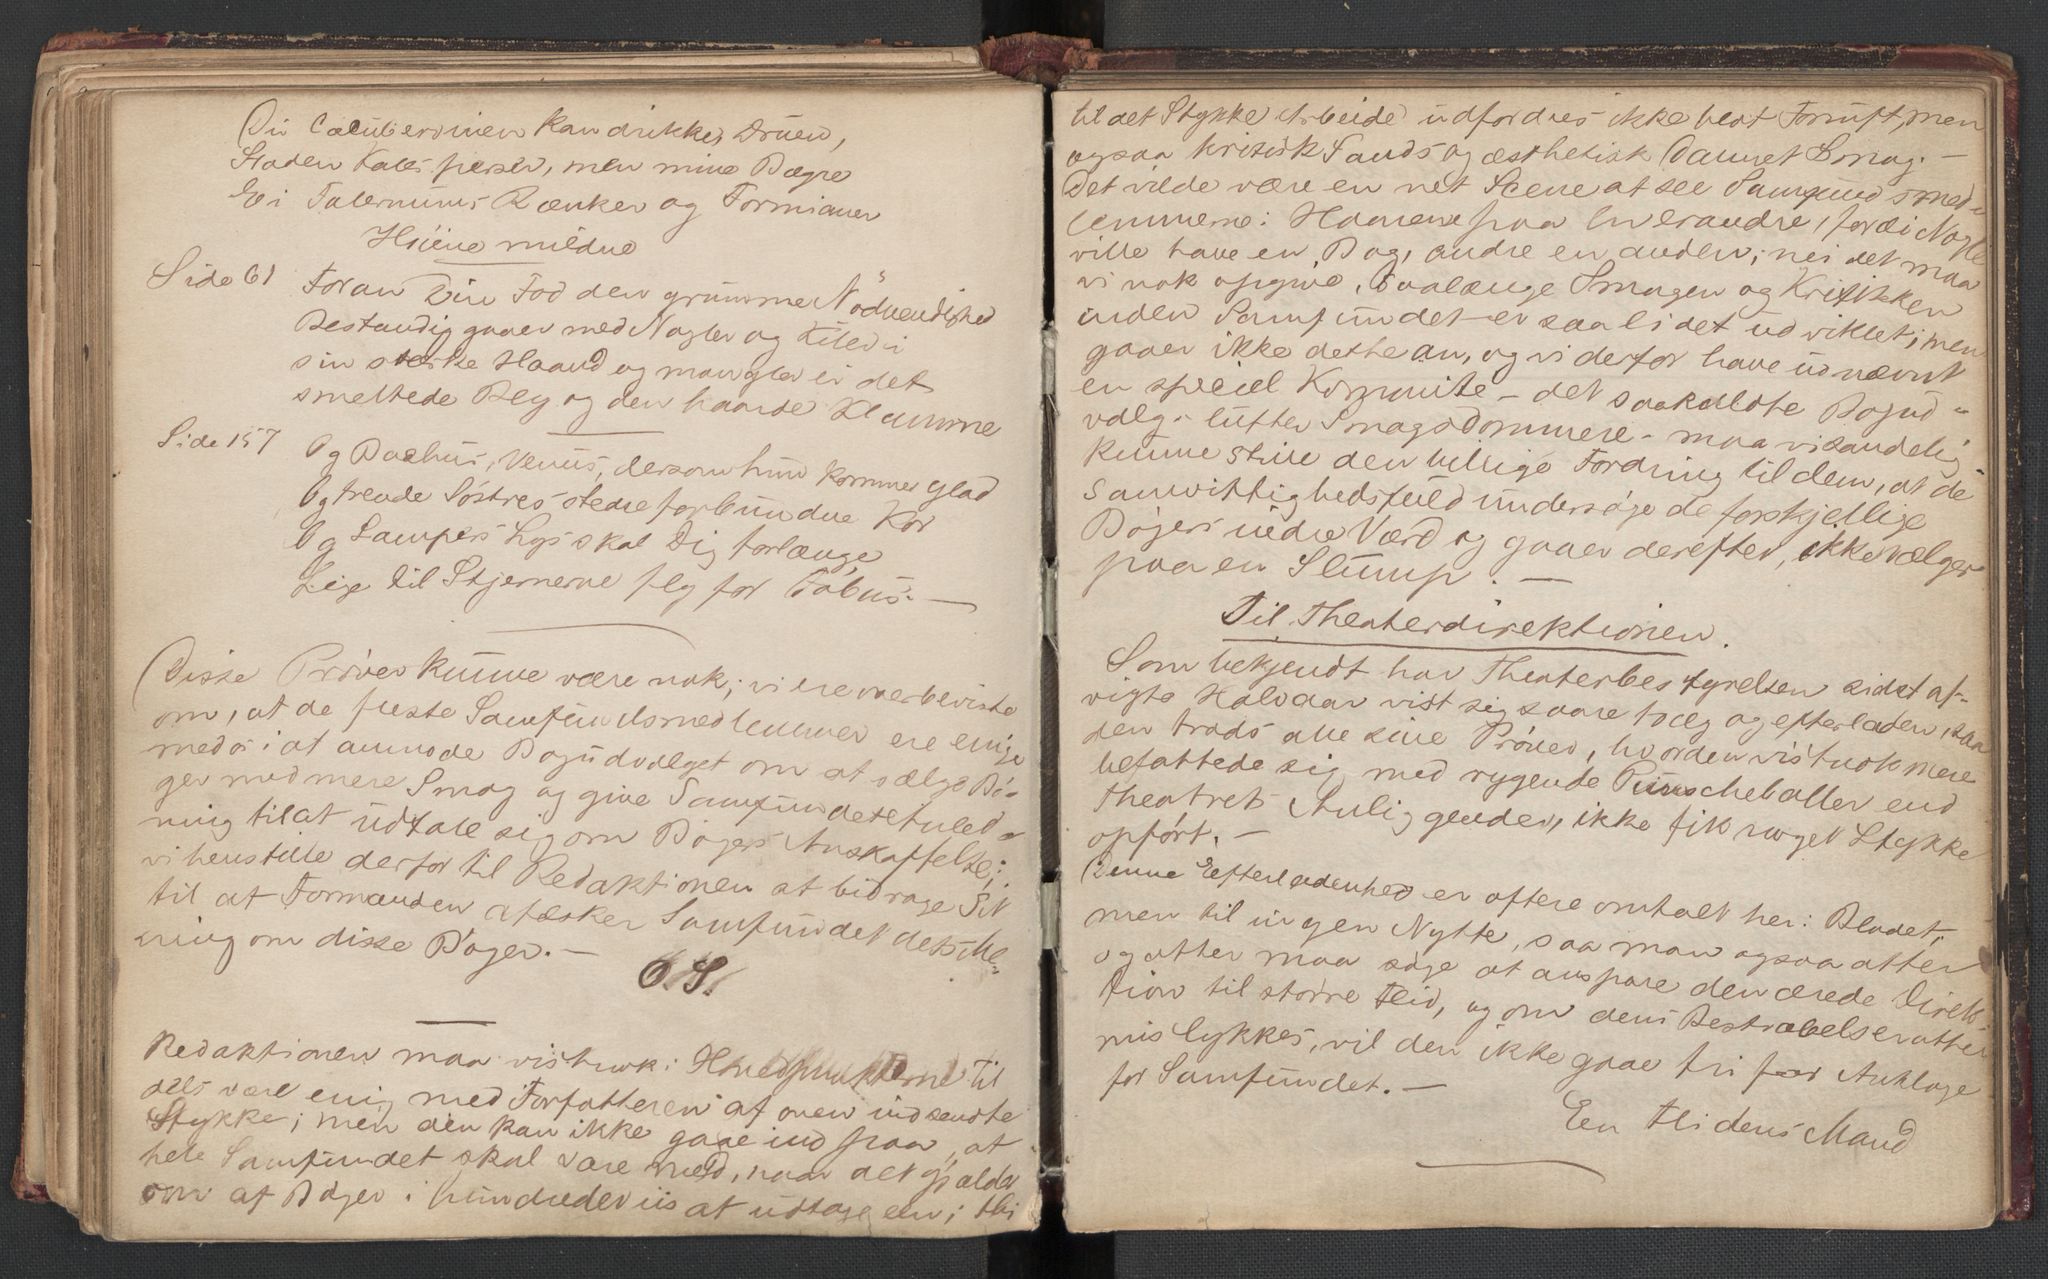 Du Cæcuberviinen kan drikke, Druen,
Staden Kales perser, men mine Bægre
Ei Falernums Ranker og Formianer
Høiene mildne
Side 61 Foran Din Fod den grumme Nödvendighed
Bestandig gaaer med Nagler og Kiler i
sin stærke Haand og mangler ei det
smeltede Bly og den haarde Klamme
Side 157 Og Bachus, Venus, dersom hun kommer glad
Og trende Söstres stedse forbundne Kor
Og Lampers Lys skal Dig forlænge,
Lige til Stjernerne fly for Föbus. —
Disse Prøver kunne være nok; vi ere overbeviste
om, at de fleste Samfundsmedlemmer ere enige
med os i at anmode Bogudvalget om at vælge Bø-
ger med mere Smag og give Samfundet Anled-
ning til at udtale sig om Bøgers Anskaffelse;
vi henstille derfor til Redaktionen at bidrage Sit
til at Formanden æsker Samfundet dets Me-
ning om disse Bøger. —
O. S.
Redaktionen maa vistnok i Hovedpunkterne til
dels være enig med Forfatteren af oven indsendte
Stykke; men den kan ikke gaae ind paa, at
hele Samfundet skal være med, naar det gjælder
om af Bøger i hundredeviis at udtage een; thi
til det Stykke Arbeide udfordres ikke blot Fornuft, men
ogsaa kritisk Sands og æsthetisk dannet Smag. —
Det vilde være en net Scene at see Samfundsmed-
lemmerne i Haarene paa hverandre, fordi Nogle
ville have en Bog, andre en anden; nei det maa
vi nok opgive, saalænge Smagen og Kritikken
inden Samfundet er saa lidet udviklet; men
gaaer ikke dette an, og vi derfor have udnævnt
en speciel Kommite – det saakaldte Bogud-
valg – lutter Smagsdommere – maa vi sandelig
kunne stille den billige Fordring til dem, at de
samvittighedsfuld undersøge de forskjellige
Bøgers indre Værd og gaaer derefter, ikke vælger
paa en Slump. —
Til Theaterdirektionen.
Som bekjendt har Theaterbestyrelsen sidst af-
vigte Halvaar vist sig saare træg og efterladen, saa
den trods alle sine Prøver, hvor den vistnok mere
befattede sig med rygende Puncheboller end
Theatrets Anliggender, ikke fik noget Stykke
opført. —
Denne Efterladenhed er oftere omtalt her i Bladet,
men til ingen Nytte, saa man ogsaa atter
og atter maa søge at anspore den ærede Direk-
tion til större Flid, og om dens Bestræbelser atter
mislykkes, vil den ikke gaae fri for Anklage
for Samfundet. —
Een Flidens Mand